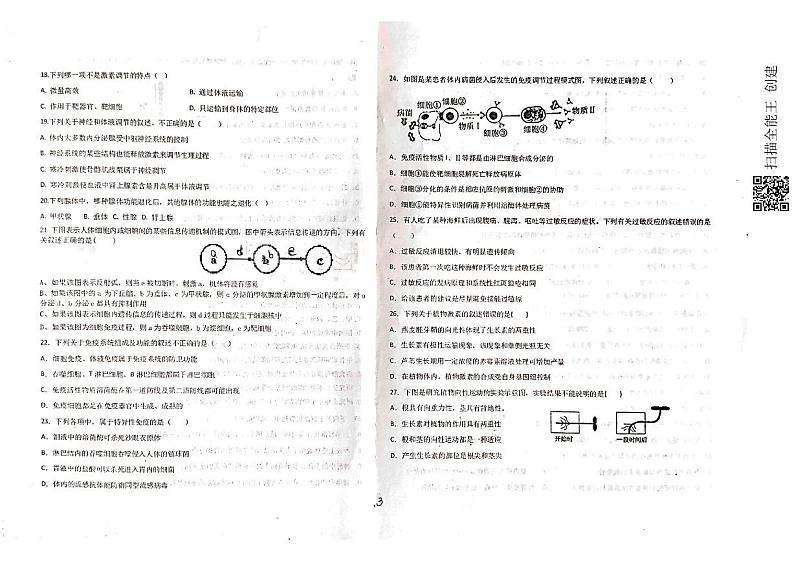 18.下列哪一项不是激素调节的特点（ ）
A. 微量高效 B. 通过体液运输
C. 作用于靶器官、靶细胞 D. 只运输到身体的特定部位
19.下列关于神经和体液调节的叙述，不正确的是（ ）
A. 体内大多数内分泌腺受中枢神经系统的控制
B. 神经系统的某些结构也能释放激素来调节生理过程
C. 寒冷刺激使骨骼肌战栗属于神经调节
D. 寒冷刺激使血液中肾上腺素含量升高属于体液调节
20.下列腺体中，哪种腺体功能退化后，其他腺体的功能也随之退化（ ）
A. 甲状腺 B. 垂体 C. 性腺 D. 肾上腺
21 下图表示人体细胞内或细胞间的某些信息传递机制的模式图，图中箭头表示信息传递的方向。下列有
关叙述正确的是（ ）
a d b e c
A、如果该图表示反射弧，则当e被切断时，刺激a，机体将没有感觉
B、如果该图中的a为下丘脑，b为垂体，c为甲状腺，则c分泌的甲状腺激素增加到一定程度后，对a
分泌d、b分泌e都具有抑制作用
C、如果该图表示细胞内遗传信息的传递过程，则d过程只能发生于细胞核中
D、如果该图为细胞免疫过程，则a为吞噬细胞，b为浆细胞，c为靶细胞
22. 下列关于免疫系统组成及功能的叙述不正确的是（ ）
A．细胞免疫、体液免疫属于免疫系统的防卫功能
B．吞噬细胞、T淋巴细胞、B淋巴细胞都属于免疫细胞
C．免疫活性物质溶菌酶在第一道防线及第二道防线都可能出现
D．免疫细胞都是在免疫器官中生成、成熟的
23．下列各项中，属于特异性免疫的是（ ）
A．泪液中的溶菌酶可杀死沙眼衣原体
B．淋巴结内的吞噬细胞吞噬侵入人体的链球菌
C．胃液中的盐酸可以杀死进入胃内的细菌
D．体内的流感抗体能防御同型流感病毒
24．如图是某患者体内病菌侵入后发生的免疫调节过程模式图，下列叙述正确的是（ ）
细胞① 细胞② 物质Ⅱ
病菌
物质Ⅰ 细胞③ 细胞④
A．免疫活性物质Ⅰ、Ⅱ等都是由淋巴细胞合成分泌的
B．细胞④能使靶细胞裂解死亡释放病原体
C．细胞③分化的条件是相应抗原的刺激和细胞②的协助
D．细胞①能特异性识别病菌并利用溶酶体处理病菌
25．有人吃了某种海鲜后出现腹痛、腹泻、呕吐等过敏反应的症状。下列有关过敏反应的叙述错误的是
（ ）
A．过敏反应消退较快，有明显遗传倾向
B．该患者第一次吃这种海鲜时不会发生过敏反应
C．过敏反应的发病原因和系统性红斑狼疮相同
D．给该患者的建议是尽量避免接触过敏原
26．下列关于植物激素的叙述错误的是（ ）
A．燕麦胚芽鞘的向光性体现了生长素的两重性
B．生长素有极性运输现象，该现象和单侧光照无关
C．芦苇生长期用一定浓度的赤霉素溶液处理可增加产量
D．在植物体内，植物激素的合成受自身基因组控制
27．下图是研究植物向性运动的实验示意图，实验结果不能说明的是（ ）
A．根具有向重力性，茎具有背地性。
B．生长素对植物的作用具有两重性
C．根和茎的向性运动都是一种适应
D．产生生长素的部位是根尖和茎尖
开始时 一段时间后
3
扫描全能王 创建